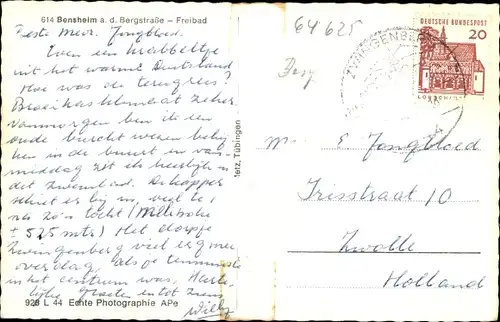 614 Bensheim a. d. Bergstraße – Freibad
Beste Mevr. Jongbloed.
Even een krabbeltje
uit het warme Duitsland
Hoe was de terugreis?
zeker.
Vanmorgen ben ik een
oude burcht wezen bekij
ken in de buurt en van
middag zit ik heerlijk in
het zwembad. De kapper
schiet er bij in, veel te
na zo'n tocht (Melibokus
± 525 mtr) Het dorpje
Zwingenberg viel erg mee
overdag, als je tenminste
in het centrum was. Harte
lijke groeten en tot ziens
Willy
928 L 44 Echte Photographie APe
etz, Tübingen
64 625
Berg
ZWINGENBERG
DEUTSCHE BUNDESPOST
20
LORSCH
E Jongbloed
Irisstraat 10
Zwolle
Holland